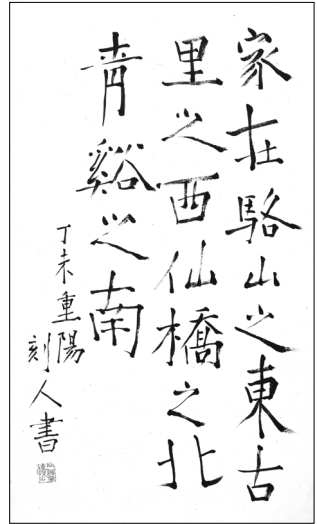 家在駱山之東古
里之西仙橋之北
青谿之南
丁未重陽
刻人書